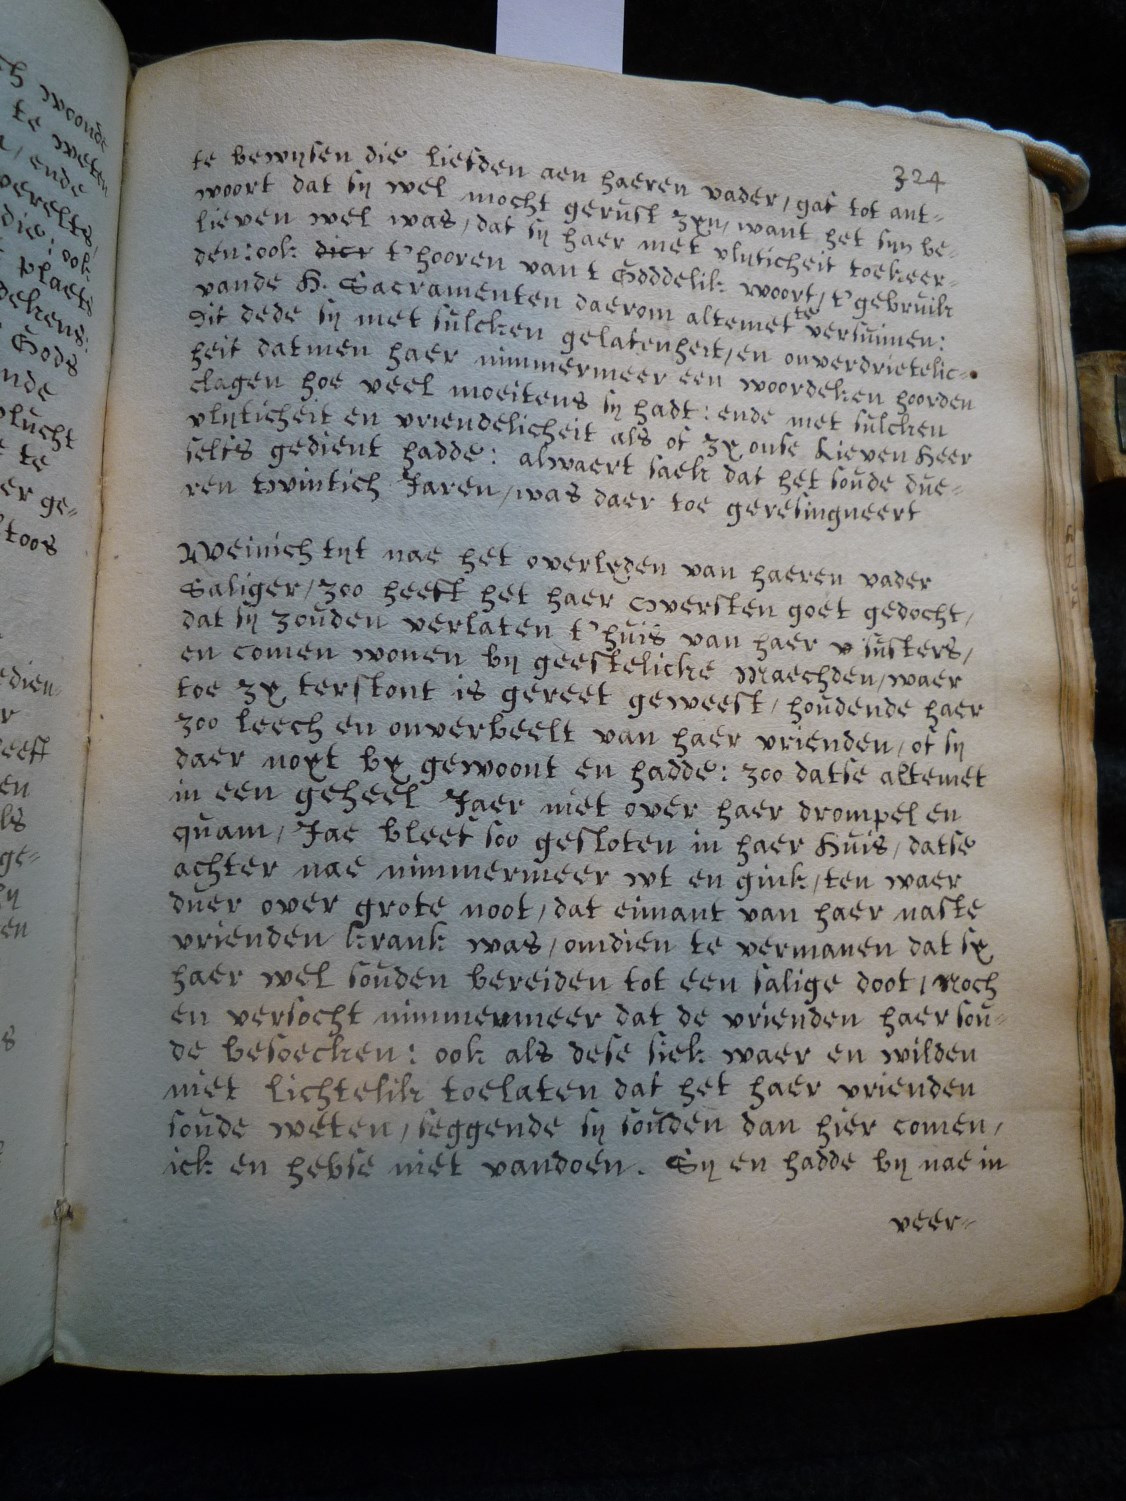 324
te bewijsen die liefden aen haeren vader, gaf tot ant-
woort dat sij wel mocht gerust zyn, want het sijn be-
lieven wel was, dat sij haer met vlijticheit toekeer-
den: ook t'hooren van t Godddelik woort, t'gebruik
vande H. Sacramenten daerom altemet te versuimen:
Dit dede sij met sulcken gelatenheit, en onverdrietelic-
heit datmen haer nimmermeer een woordeken hoorden
clagen hoe veel moeitens sij hadt: ende met sulcken
vlijticheit en vriendelicheit als of zy onse Lieven Heer
selfs gedient hadde: alwaert saek dat het soude due-
ren twintich Jaren, was daer toe geresingneert
Weinich tijt nae het overleyden van haeren vader
Saliger, zoo heeft het haer Oversten goet gedocht,
dat sij zouden verlaten t'huis van haer susters,
en comen wonen bij geestelicke Maechden, waer
toe zy terstont is gereet geweest, houdende haer
zoo leech en onverbeelt van haer vrienden, of sij
daer noyt by gewoont en hadde: zoo datse altemet
in een geheel Jaer niet over haer drompel en
quam, Jae bleef soo gesloten in haer Huis, datse
achter nae nimmermeer wt en gink, ten waer
duer over grote noot, dat eimant van haer naste
vrienden krank was, omdien te vermanen dat sy
haer wel souden bereiden tot een salige doot, Noch
en versocht nimmermeer dat de vrienden haer sou-
de besoecken: ook als dese siek waer en wilden
niet lichtelik toelaten dat het haer vrienden
soude weten, seggende sij souden dan hier comen,
ick en hebse niet vandoen. Sij en hadde bij nae in
veer-